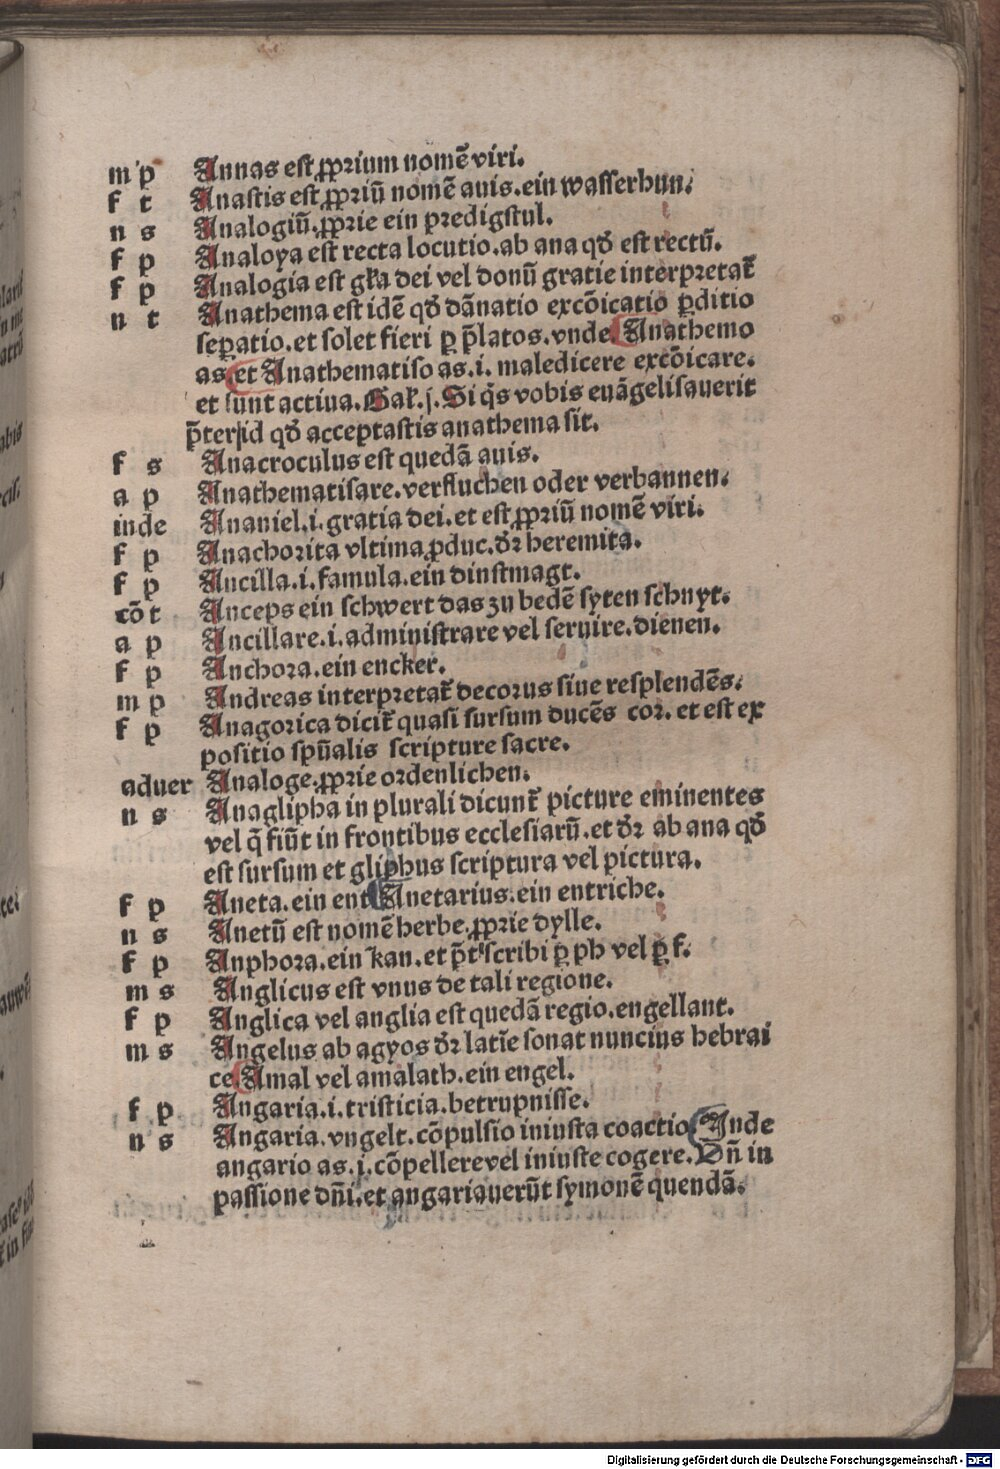 m p Annas est ꝓprium nomē viri.
f t Anastis est ꝓpriū nomē auis.ein wasserhun.
n s Analogiū.ꝓprie ein predigstul.
f p Analoya est recta locutio.ab ana qđ est rectū.
f p Analogia est gr̄a dei vel donū gratie interpretat᷑
n t Anathema est idē qđ dānatio excōicatio ꝑditio
seꝑatio.et solet fieri ꝑ p̄latos.vnde Anathemo
as et Anathematiso as.i. maledicere excōicare.
et sunt actiua. Gal̄.j. Si q̄s vobis euāgelisauerit
p̄ter id qđ acceptastis anathema sit.
f s Anacroculus est quedā auis.
a p Anathematisare.verfluchen oder verbannen.
inde Ananiel.i.gratia dei.et est ꝓpriū nomē viri.
f p Anachorita vltima ꝓduc.dr̄ heremita.
f p Ancilla.i.famula.ein dinstmagt.
cō t Anceps ein schwert das zu bedē syten schnyt.
a p Ancillare.i.administrare vel seruire.dienen.
f p Anchora.ein encker.
m p Andreas interpretat᷑ decorus siue resplendēs.
f p Anagorica dicit᷑ quasi sursum ducēs cor. et est ex
positio spūalis scripture sacre.
aduer Analoge.ꝓprie ordenlichen.
n s Anaglipha in plurali dicunt᷑ picture eminentes
vel q̄ fiūt in frontibus ecclesiarū.et dr̄ ab ana qđ
est sursum et gliphus scriptura vel pictura.
f p Aneta.ein ent Anetarius.ein entriche.
n s Anetū est nomē herbe.ꝓprie dylle.
f p Anphora.ein kan.et p̄t scribi ꝑ ph vel ꝑ f.
m s Anglicus est vnus de tali regione.
f p Anglica vel anglia est quedā regio.engellant.
m s Angelus ab agyos dr̄ latīe sonat nuncius hebrai
ce. Amal vel amalath.ein engel.
f p Angaria.i.tristicia.betrupnisse.
n s Angaria.vngelt.cōpulsio iniusta coactio Inde
angario as.i.cōpellere vel iniuste cogere. Dn̄ in
passione dn̄i.et angariauerūt symonē quendā.
Digitalisierung gefördert durch die Deutsche Forschungsgemeinschaft - DFG